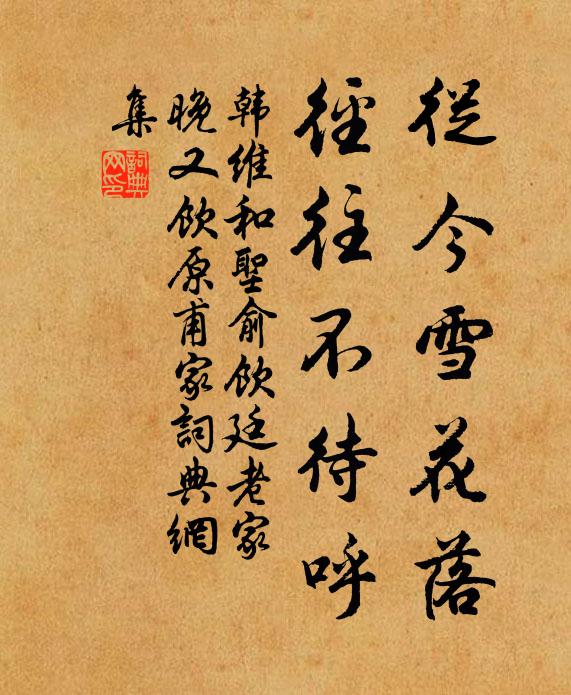 從今雪花落
徑往不待呼
韩維和聖俞飲廷老家
晚又飲原甫家詞典網
集
詞典
网印